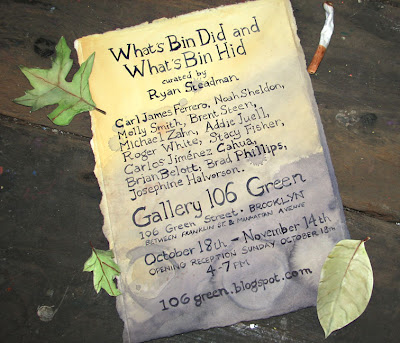 What's Bin Did and
What's Bin Hid
curated by
Ryan Steadman
Carl James Ferrero, Noah Sheldon,
Molly Smith, Brent Steen,
Michael Zahn, Addie Juell,
Roger White, Stacy Fisher,
Carlos Jiménez Cahua,
Brian Belott, Brad Phillips,
Josephine Halvorson.
Gallery 106 Green
106 Green Street · BROOKLYN
BETWEEN FRANKLIN ST & MANHATTAN AVENUE
October 18th - November 14th
OPENING RECEPTION SUNDAY OCTOBER 18th
4-7 PM
106green.blogspot.com